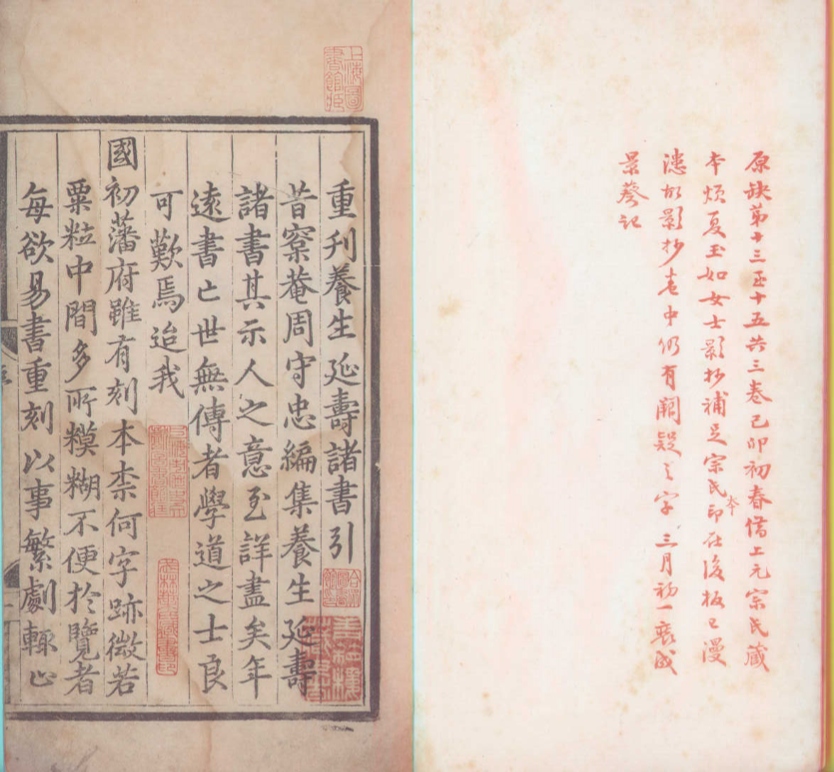 原缺第十三至十五共三卷己卯初春借上元宗氏藏
本煩夏玉如女士影抄補足宗氏本印在後板已漫
漶故影抄卷中仍有闕疑之字三月初一裝成
景葵記
上海圖書館藏
重刊養生延壽諸書引
昔寀菴周守忠編集養生延壽
諸書其示人之意至詳盡矣年
遠書亡世無傳者學道之士良
可歎焉迨我
國初藩府雖有刻本柰何字跡微若
粟粒中間多所糢糊不便於覽者
每欲易書重刻以事繁劇輙止